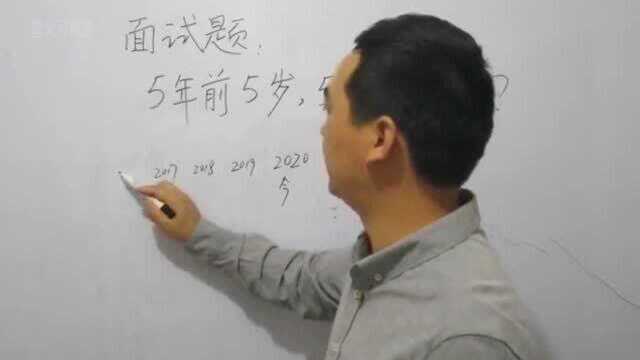 面试题:
5年前5岁, 5 ?
2017 2018 2019 2020
今